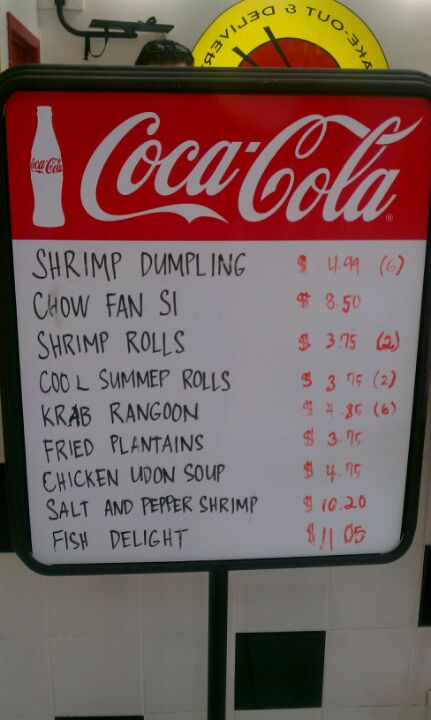 TAKE-OUT & DELIVER
Coca-Cola
Coca-Cola®
SHRIMP DUMPLING $ 4.99 (6)
CHOW FAN SI $ 8.50
SHRIMP ROLLS $ 3.75 (2)
COOL SUMMER ROLLS $ 3.75 (2)
KRAB RANGOON $ 4.85 (6)
FRIED PLANTAINS $ 3.75
CHICKEN UDON SOUP $ 4.75
SALT AND PEPPER SHRIMP $ 10.20
FISH DELIGHT $ 11.05